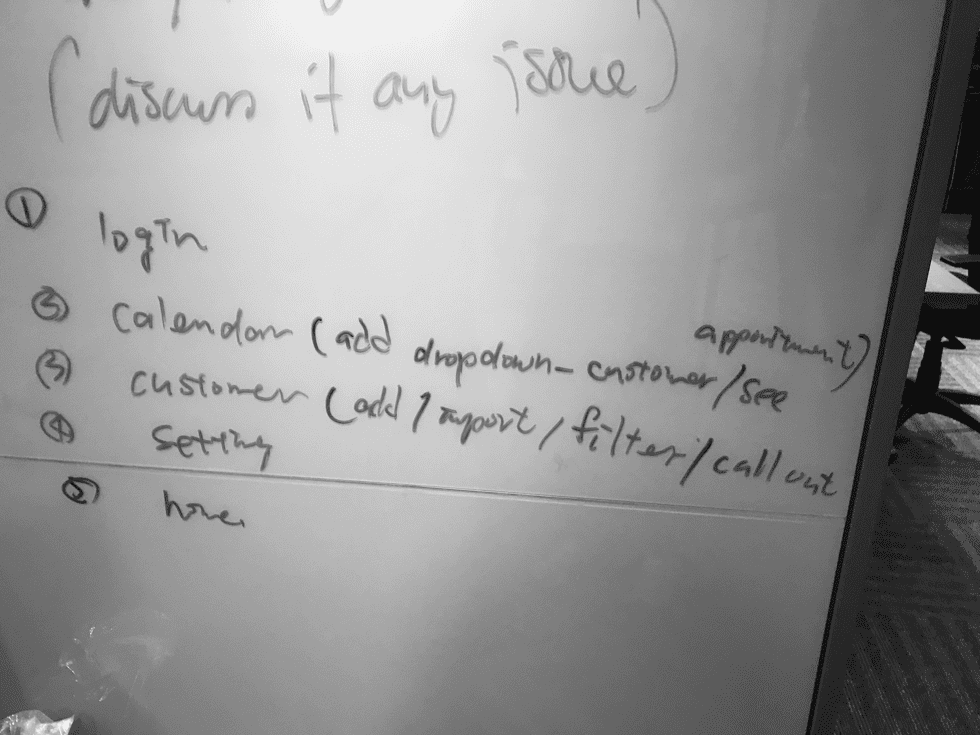 (discuss if any issue)
① login
② calendar (add dropdown_customer/see appointment)
③ customer (add/import/filter/call out
④ setting
⑤ home